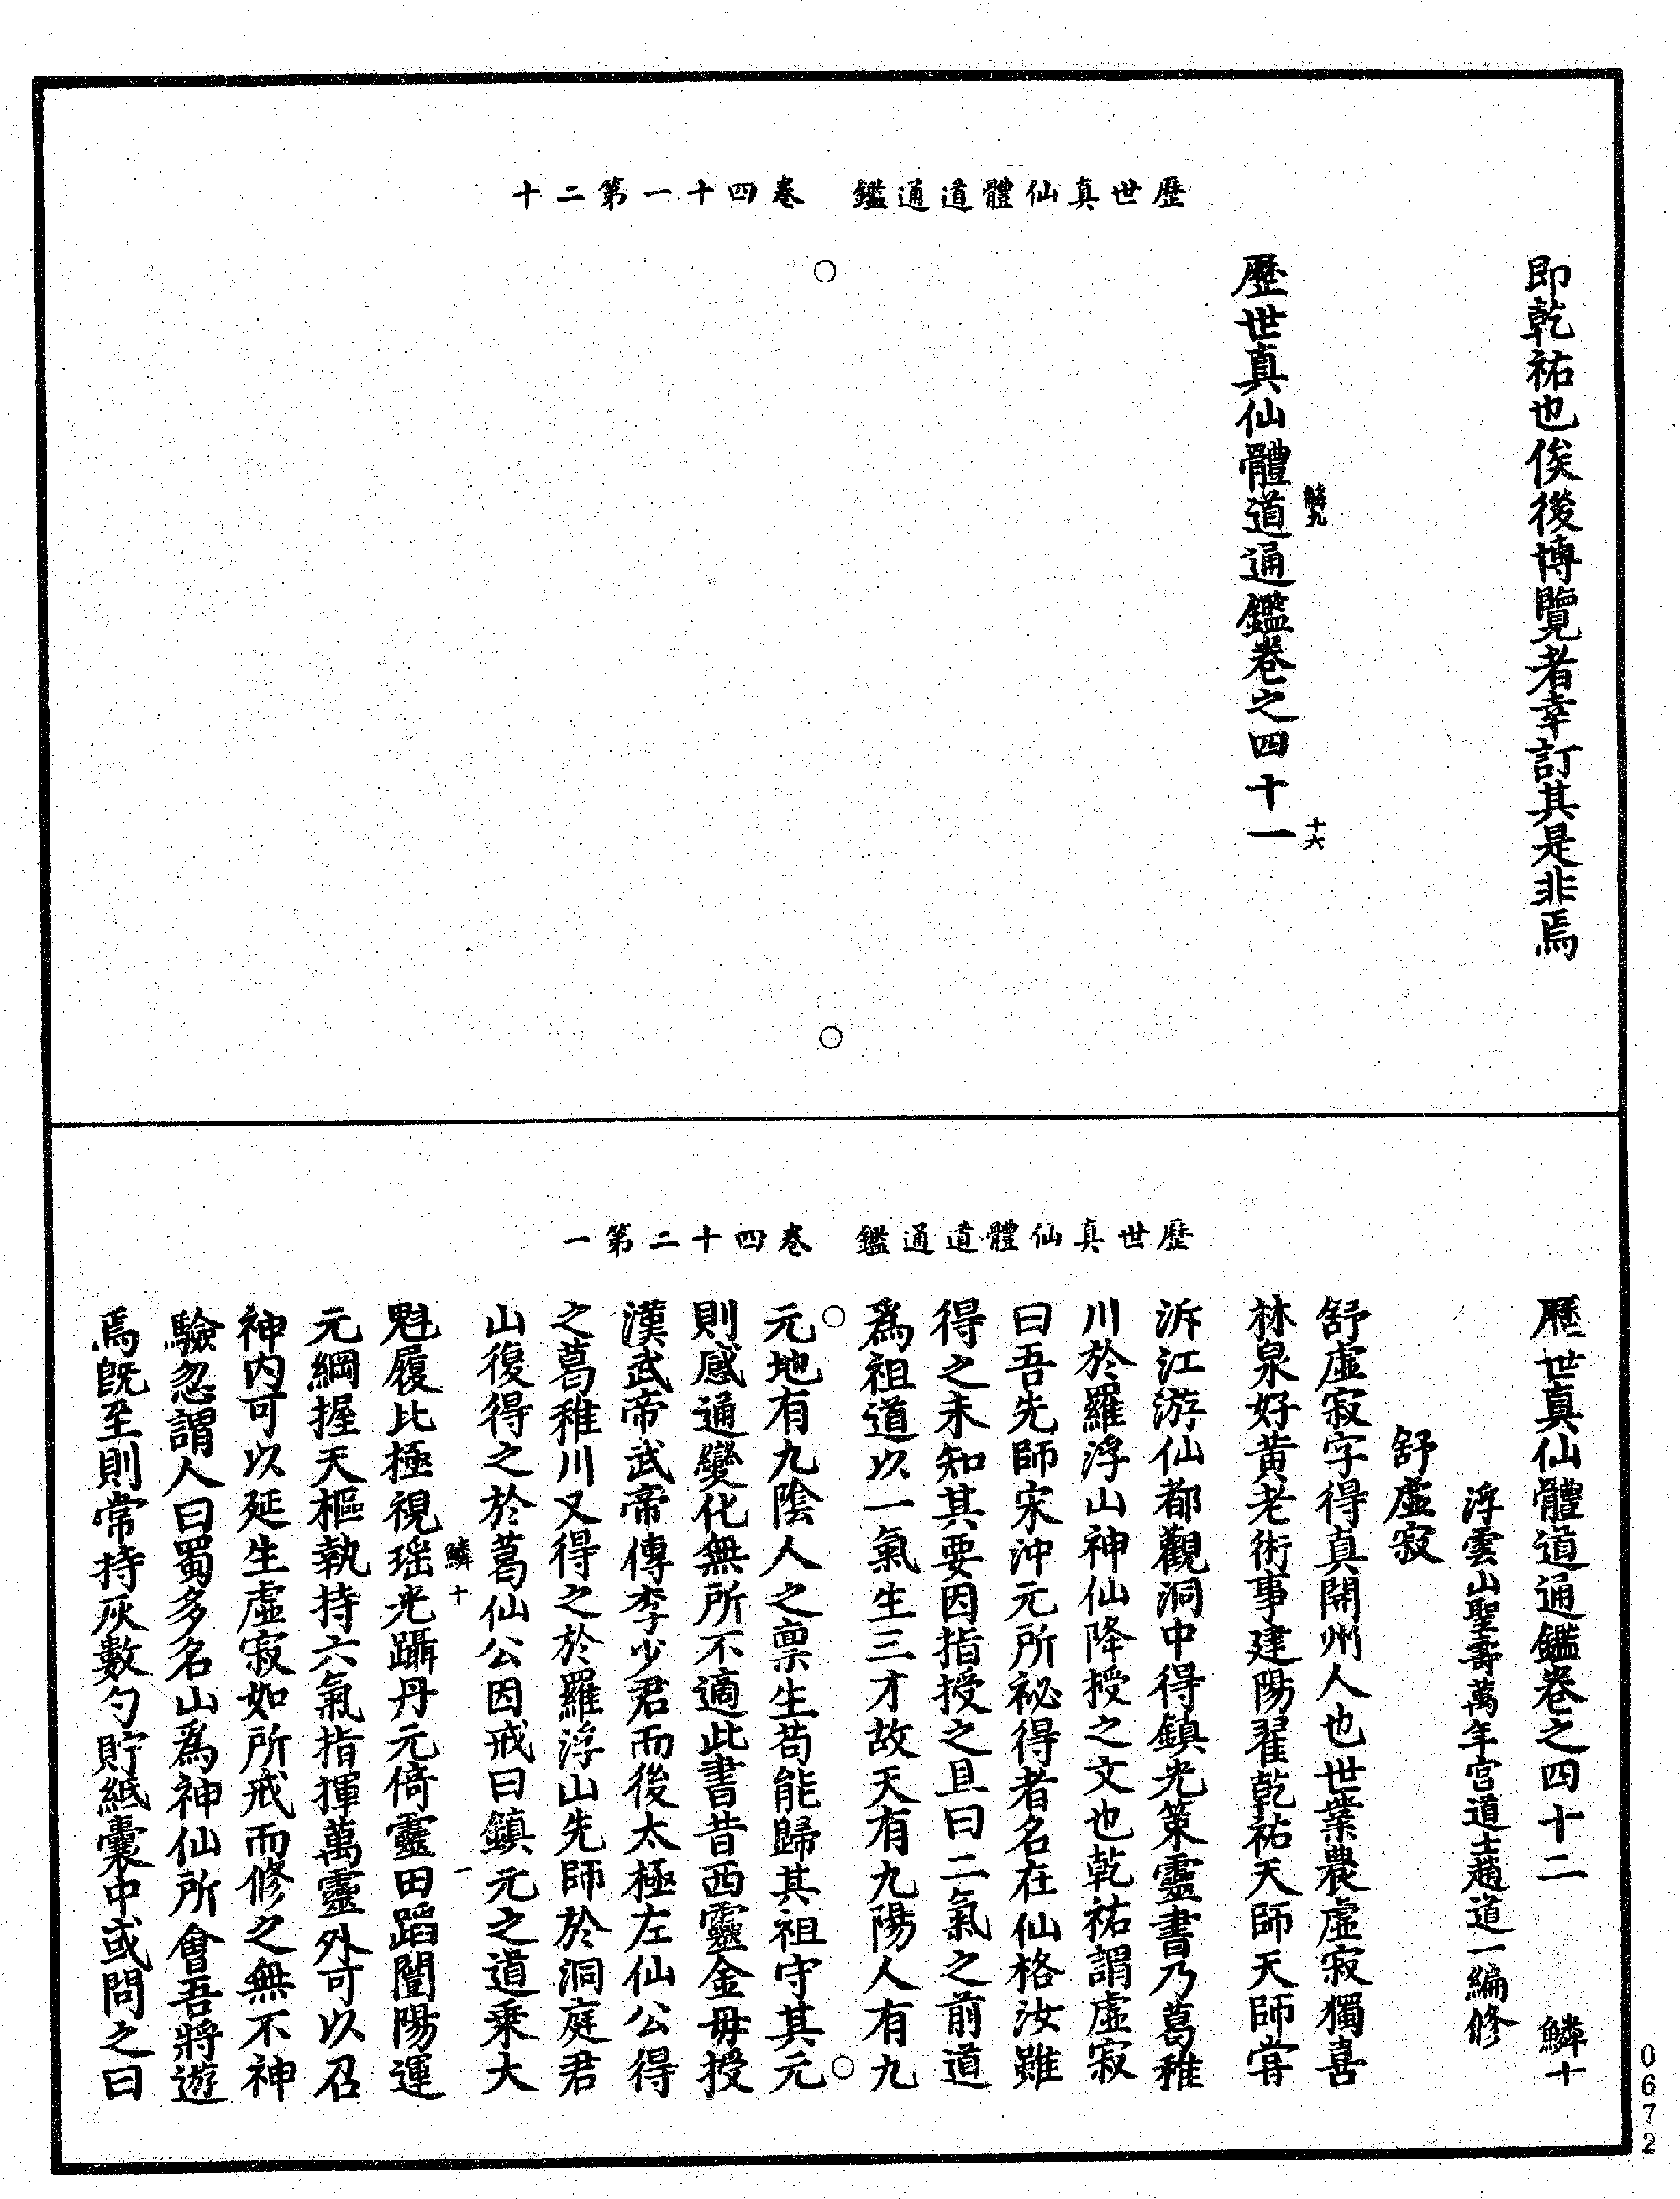 歷世真仙體道通鑑　卷四十一第二十
即乾祐也俟後博覽者幸訂其是非焉
鱗九　十六
歷世真仙體道通鑑卷之四十一
歷世真仙體道通鑑　卷四十二第一
歷世真仙體道通鑑卷之四十二　鱗十
浮雲山聖壽萬年宮道士趙道一編修
舒虛寂
舒虛寂字得真開州人也世業農虛寂獨喜
林泉好黃老術事建陽翟乾祐天師天師甞
泝江游仙都觀洞中得鎮光策靈書乃葛稚
川於羅浮山神仙降授之文也乾祐謂虛寂
曰吾先師宋沖元所祕得者名在仙格汝雖
得之未知其要因指授之且曰二氣之前道
為祖道以一氣生三才故天有九陽人有九
元地有九陰人之禀生苟能歸其祖守其元
則感通變化無所不適此書昔西靈金毋授
漢武帝武帝傳李少君而後太極左仙公得
之葛稚川又得之於羅浮山先師於洞庭君
山復得之於葛仙公因戒曰鎮元之道乘大
鱗十　一
魁履比極視瑶光躡丹元倚靈田蹈闓陽運
元綱握天樞執持六氣指揮萬靈外可以召
神內可以延生虛寂如所戒而修之無不神
驗忽謂人曰蜀多名山為神仙所會吾將遊
焉旣至則常持灰數勺貯紙囊中或問之曰
0672